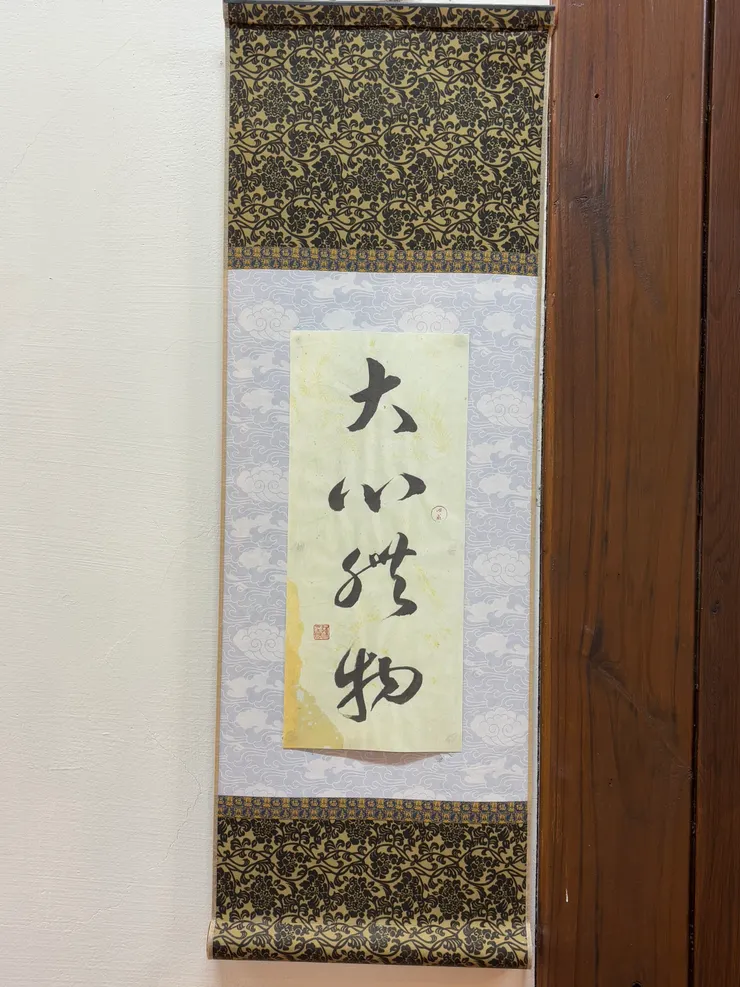 大心體物